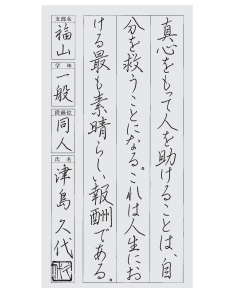 真心をもって人を助けることは、自
分を救うことになる。これは人生にお
ける最も素晴らしい報酬である。
支部名
福山
学年
一般
段級位
同人
氏名
津島久代